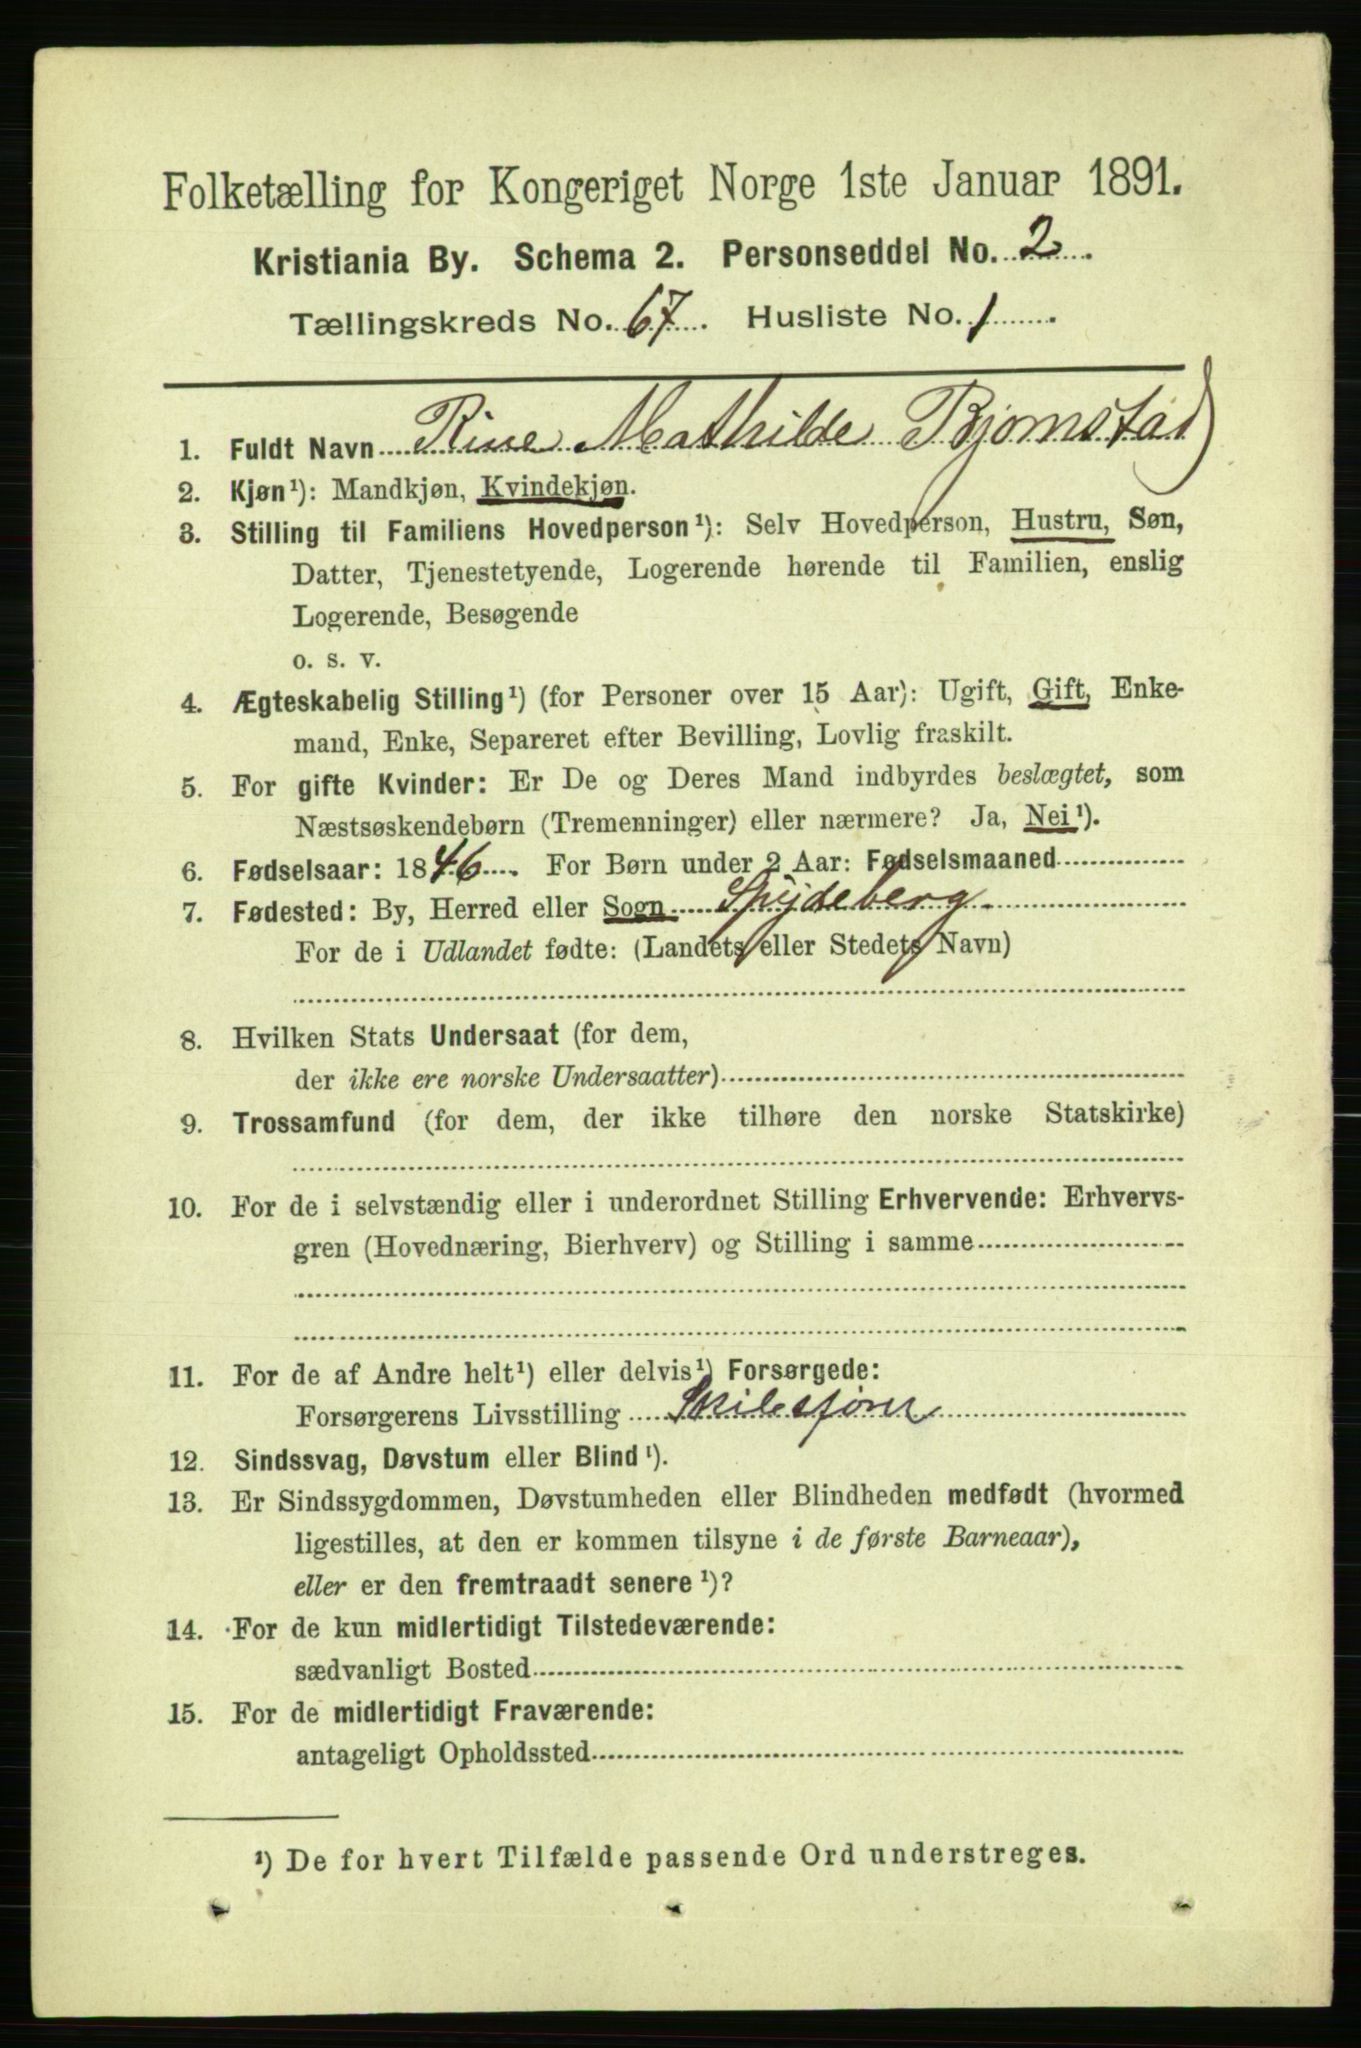 Folketælling for Kongeriget Norge 1ste Januar 1891.
Kristiania By. Schema 2. Personseddel No. 2.
Tællingskreds No. 67. Husliste No. 1.
1. Fuldt Navn Rine Mathilde Bjørnstad
2. Kjøn¹): Mandkjøn, Kvindekjøn.
3. Stilling til Familiens Hovedperson¹): Selv Hovedperson, Hustru, Søn,
Datter, Tjenestetyende, Logerende hørende til Familien, enslig
Logerende, Besøgende
o. s. v.
4. Ægteskabelig Stilling¹) (for Personer over 15 Aar): Ugift, Gift, Enke-
mand, Enke, Separeret efter Bevilling, Lovlig fraskilt.
5. For gifte Kvinder: Er De og Deres Mand indbyrdes beslægtet, som
Næstsøskendebørn (Tremenninger) eller nærmere? Ja, Nei¹).
6. Fødselsaar: 1846. For Børn under 2 Aar: Fødselsmaaned
7. Fødested: By, Herred eller Sogn Spydeberg
For de i Udlandet fødte: (Landets eller Stedets Navn)
8. Hvilken Stats Undersaat (for dem,
der ikke ere norske Undersaatter)
9. Trossamfund (for dem, der ikke tilhøre den norske Statskirke)
10. For de i selvstændig eller i underordnet Stilling Erhvervende: Erhvervs-
gren (Hovednæring, Bierhverv) og Stilling i samme
11. For de af Andre helt¹) eller delvis¹) Forsørgede:
Forsørgerens Livsstilling
12. Sindssvag, Døvstum eller Blind¹).
13. Er Sindssygdommen, Døvstumheden eller Blindheden medfødt (hvormed
ligestilles, at den er kommen tilsyne i de første Barneaar),
eller er den fremtraadt senere¹)?
14. For de kun midlertidigt Tilstedeværende:
sædvanligt Bosted
15. For de midlertidigt Fraværende:
antageligt Opholdssted
¹) De for hvert Tilfælde passende Ord understreges.